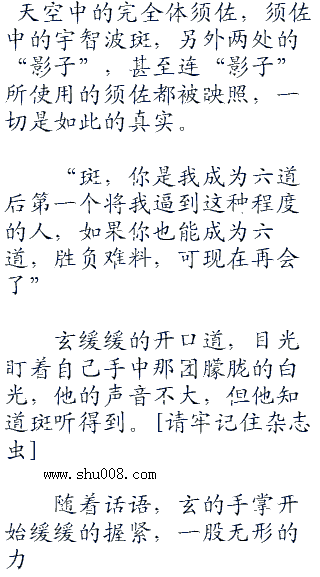 天空中的完全体须佐，须佐
中的宇智波斑，另外两处的
“影子”，甚至连“影子”
所使用的须佐都被映照，一
切是如此的真实。
“斑，你是我成为六道
后第一个将我逼到这种程度
的人，如果你也能成为六
道，胜负难料，可现在再会
了”
玄缓缓的开口道，目光
盯着自己手中那团朦胧的白
光，他的声音不大，但他知
道斑听得到。[请牢记住杂志
虫]
www.shu008.com
随着话语，玄的手掌开
始缓缓的握紧，一股无形的
力